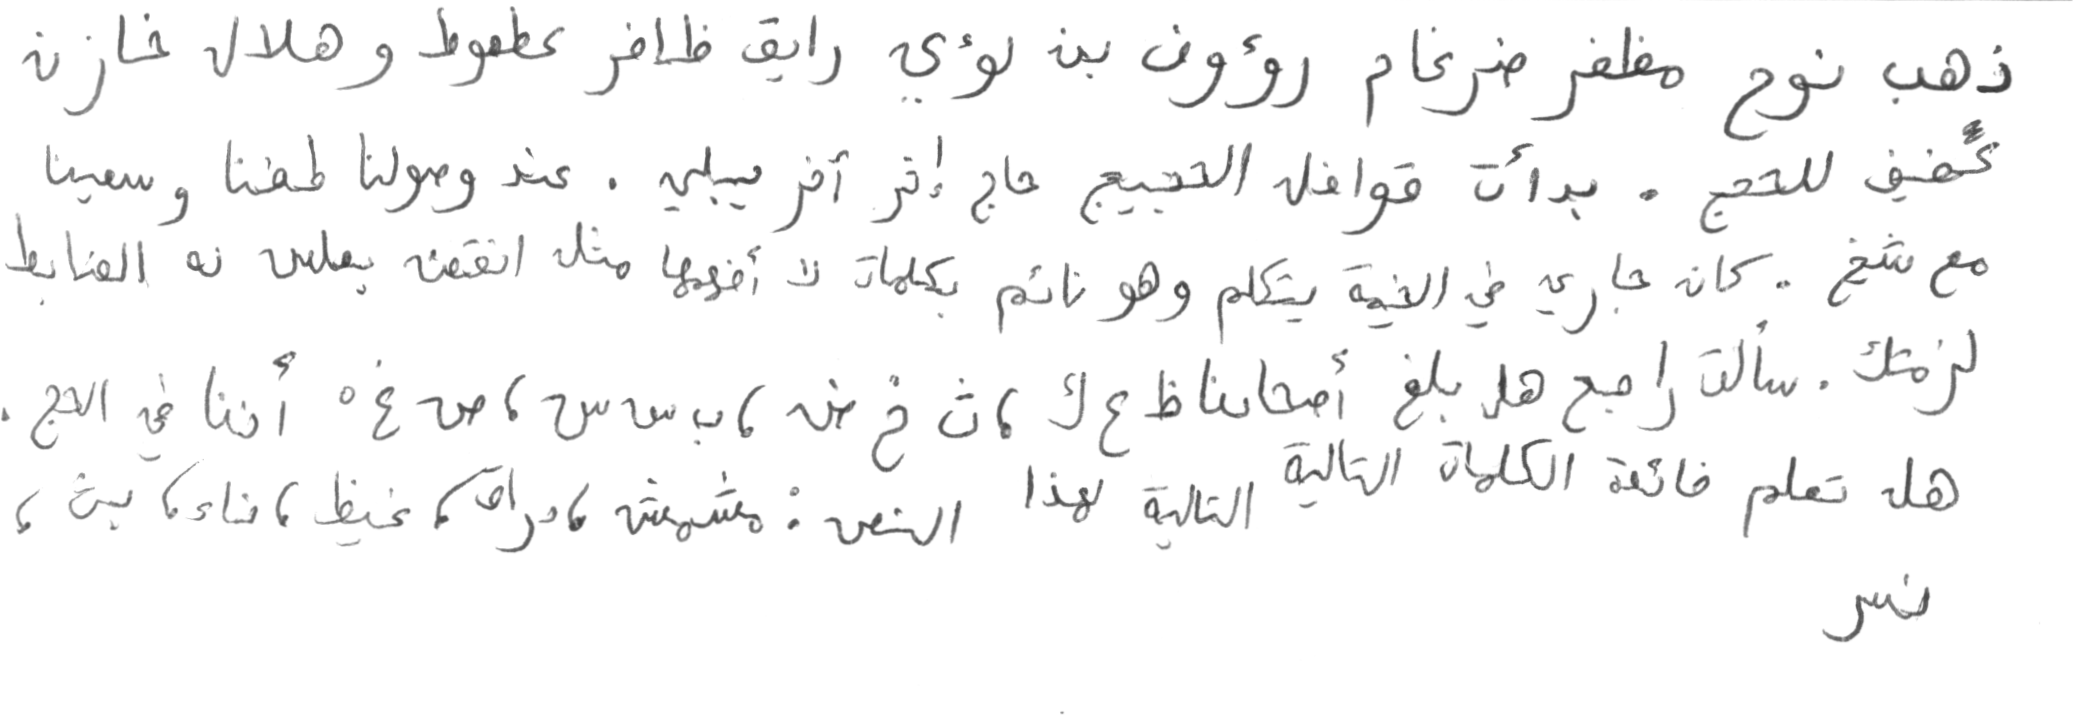 ذهب نوح مظفر ضرغام رؤوف بن لؤي رايق ظافر عطعوط و هلال خازن
غضيف للحج . بدأت قوافل الحجيج حاج إثر آخر ميبلي . عند وصولنا طفنا وسعينا
مع شيخ . كان جاري في الخيمة يتكلم وهو نائم بكلمات لا أفهمها مثل انقضت بعلس نه الضابط
لزمتك . سألت راجح هل بلغ أصحابنا ظ ع ك ، ث خ ض ، ب س س ، ص غ ه أننا في الحج .
هل تعلم فائدة الكلمات التالية التالية لهذا النص : مشمش ، دراق ، غيظ ، ضاء ، بيث ،
نسر